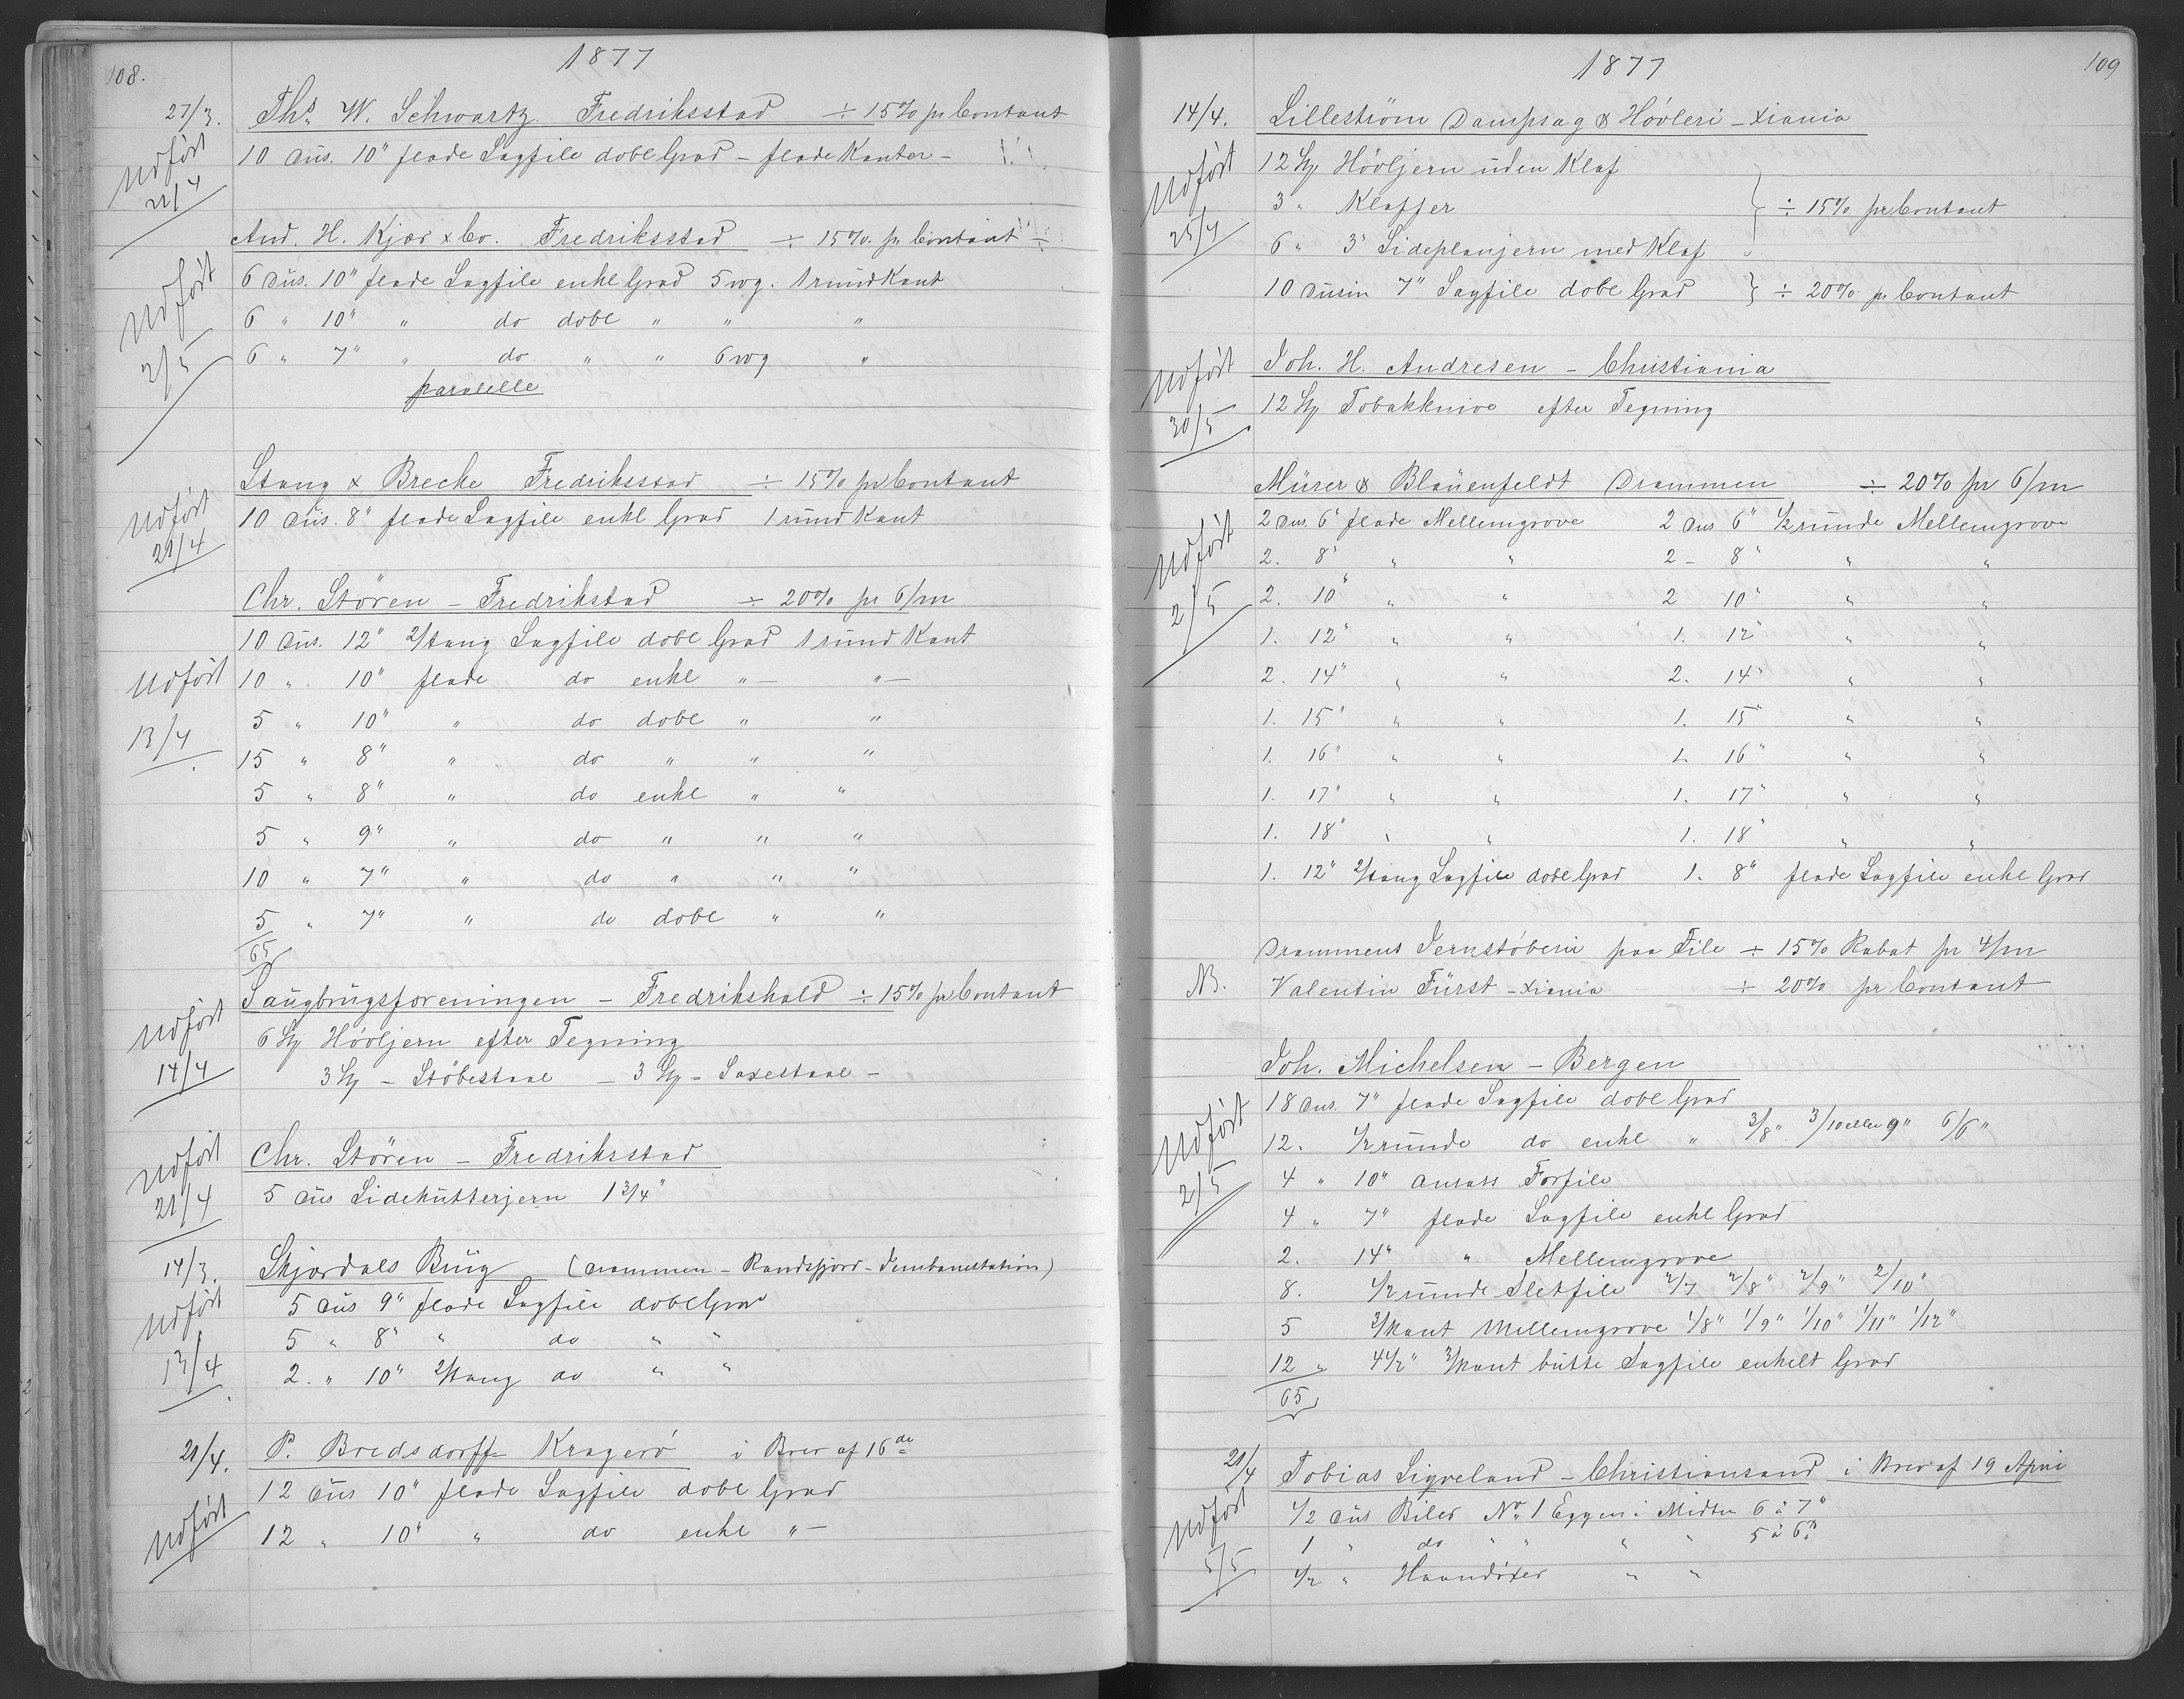 108.
1877
27/3. Ths. W. Schwartz Fredriksstad ÷ 15% pr Contant
Udført 21/4
10 Dus. 10" flade Sagfile dobl Grad – flade Kanter –
And. H. Kjær & Co. Fredriksstad ÷ 15% pr Contant
Udført 2/5
6 Dus. 10" flade Sagfile enkl Grad 5 wg. 1 rund Kant
6 " 10" " do dobl " " "
6 " 7" " do " " 6 wg "
paralelle
Stang & Breche Fredriksstad ÷ 15% pr Contant
Udført 21/4
10 Dus. 8" flade Sagfile enkl Grad 1 rund Kant
Chr. Stören – Fredrikstad ÷ 20% pr 6/m
10 Dus. 12" 2/tang Sagfile dobl Grad 1 rund Kant
Udført 13/4
10 " 10" flade do enkl " – " –
5 " 10" " do dobl " "
15 " 8" " do " " "
5 " 8" " do enkl " "
5 " 9" " do " " "
10 " 7" " do " " "
5 " 7" " do dobl " "
65
Saugbrugsforeningen – Fredrikshald ÷ 15% pr Contant
Udført 14/4
6 Stk Høvljern efter Tegning
3 Stk – Støbestaal – 3 Stk – Saxestaal –
Udført 21/4
Chr. Stören – Fredriksstad
5 Dus Sidekutterjern 1 3/4"
14/3. Skjørdals Brug (Drammen – Randsfjord – Jernbanestation)
Udført 13/4
5 Dus 9" flade Sagfile dobl Grad
5 " 8" " do " "
2. " 10" 2/tang do " "
21/4. P. Bredsdorff Kragerö i Brev af 16de
12 Dus 10" flade Sagfile dobl Grad
Udført
12 " 10" " do enkl " –
109
1877
14/4. Lillestrøm Dampsag & Høvleri – Xiania
Udført 25/4
12 Stk Høvljern uden Klaf
3 " Klaffer } ÷ 15% pr Contant
6 " 3" Sideplanjern med Klaf
10 Dusin 7" Sagfile dobl Grad } ÷ 20% pr Contant
Udført 30/5
Joh. H. Andresen – Christiania
12 Stk Tobakknive efter Tegning
Mürer & Blauenfeldt Drammen ÷ 20% pr 6/m
Udført 2/5
2 Dus. 6" flade Mellemgrove 2 Dus 6" 1/2 runde Mellemgrove
2. 8" " " 2 – 8" " "
2. 10" " " 2 10" " "
1. 12" " " 1. 12" " "
2. 14" " " 2. 14" " "
1. 15" " " 1. 15" " "
1. 16" " " 1. 16" " "
1. 17" " " 1. 17" " "
1. 18" " " 1. 18" " "
1. 12" 2/tang Sagfile dobl Grad 1. 8" flade Sagfile enkl Grad
Drammens Jernstøberi paa File ÷ 15% Rabat pr 4/m
NB. Valentin Fürst – Xiania ÷ 20% pr Contant
Joh. Michelsen – Bergen
Udført 2/5
18 Dus. 7" flade Sagfile dobl Grad
12. 1/2 runde do enkl " 3/8" 3/10 eller 9" 6/6"
4 " 10" Ansats Forfile
4 " 7" flade Sagfile enkl Grad
2. 14" " Mellemgrove
8. 1/2 runde Sletfile 2/7 2/8" 2/9" 2/10"
5 3/kant Mellemgrove 1/8" 1/9" 1/10" 1/11" 1/12"
12 " 4 1/2" 3/kant butte Sagfile enkelt Grad
65
21/4 Tobias Ligveland – Christiansand i Brev af 19 April
Udført 5/5
1/2 Dus Biler No. 1 Eggen i Midten 6 à 7"
1 " do " " " " 5 à 6"
1/2 " Haandøxer " "